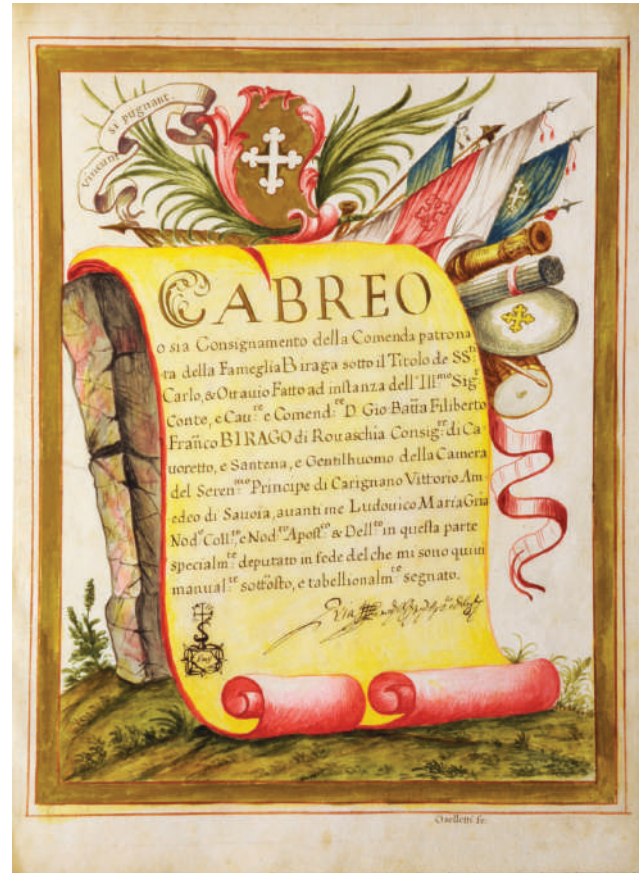 Vincunt si pugnant.
CABREO
o sia Consignamento della Comenda patrona-
ta della Fameglia Biraga sotto il Titolo de SS.ti
Carlo, & Ottauio Fatto ad instanza dell' Ill.mo Sig.r
Conte, e Cau.re e Comend.re D. Gio Batta Filiberto
Franco BIRAGO di Rouaschia Consig.re di Ca-
uoretto, e Santena, e Gentilhuomo della Camera
del Seren.mo Principe di Carignano Vittorio Am-
edeo di Sauoia, auanti me Ludouico Maria Gria
Nod.o Coll.to e Nod.ro Apost.co & Dell.to in questa parte
specialm.te deputato in fede del che mi sono quiui
manual.te sottosto, e tabellionalm.te segnato.